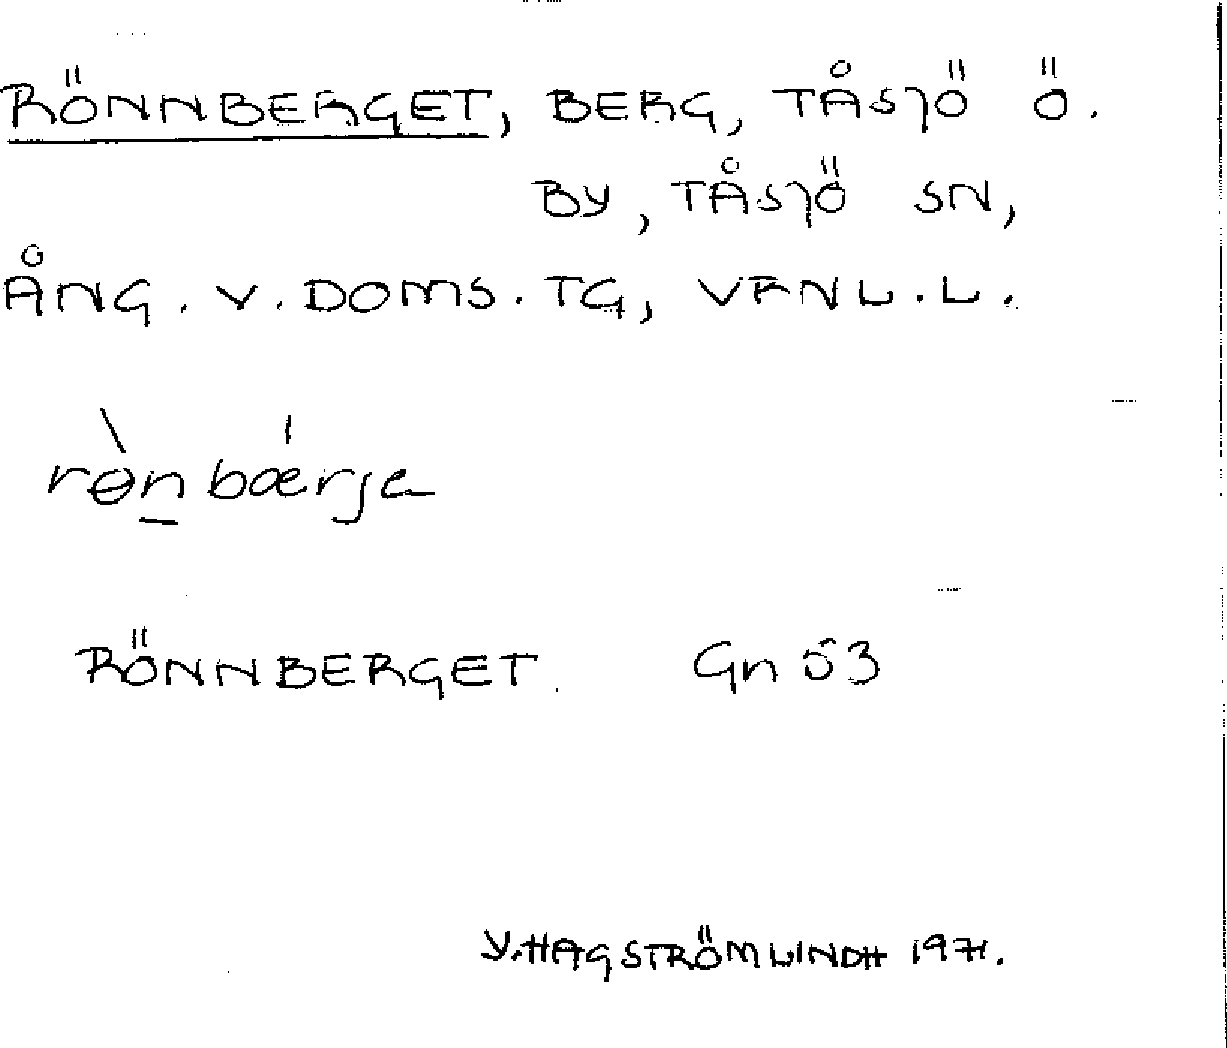 RÖNNBERGET, BERG, TÅSJÖ Ö.
BY, TÅSJÖ SN,
ÅNG. V. DOMS. TG, VRNL. L.
rønbærja
RÖNNBERGET. Gn 53
Y. HAGSTRÖM LINDH 1971.